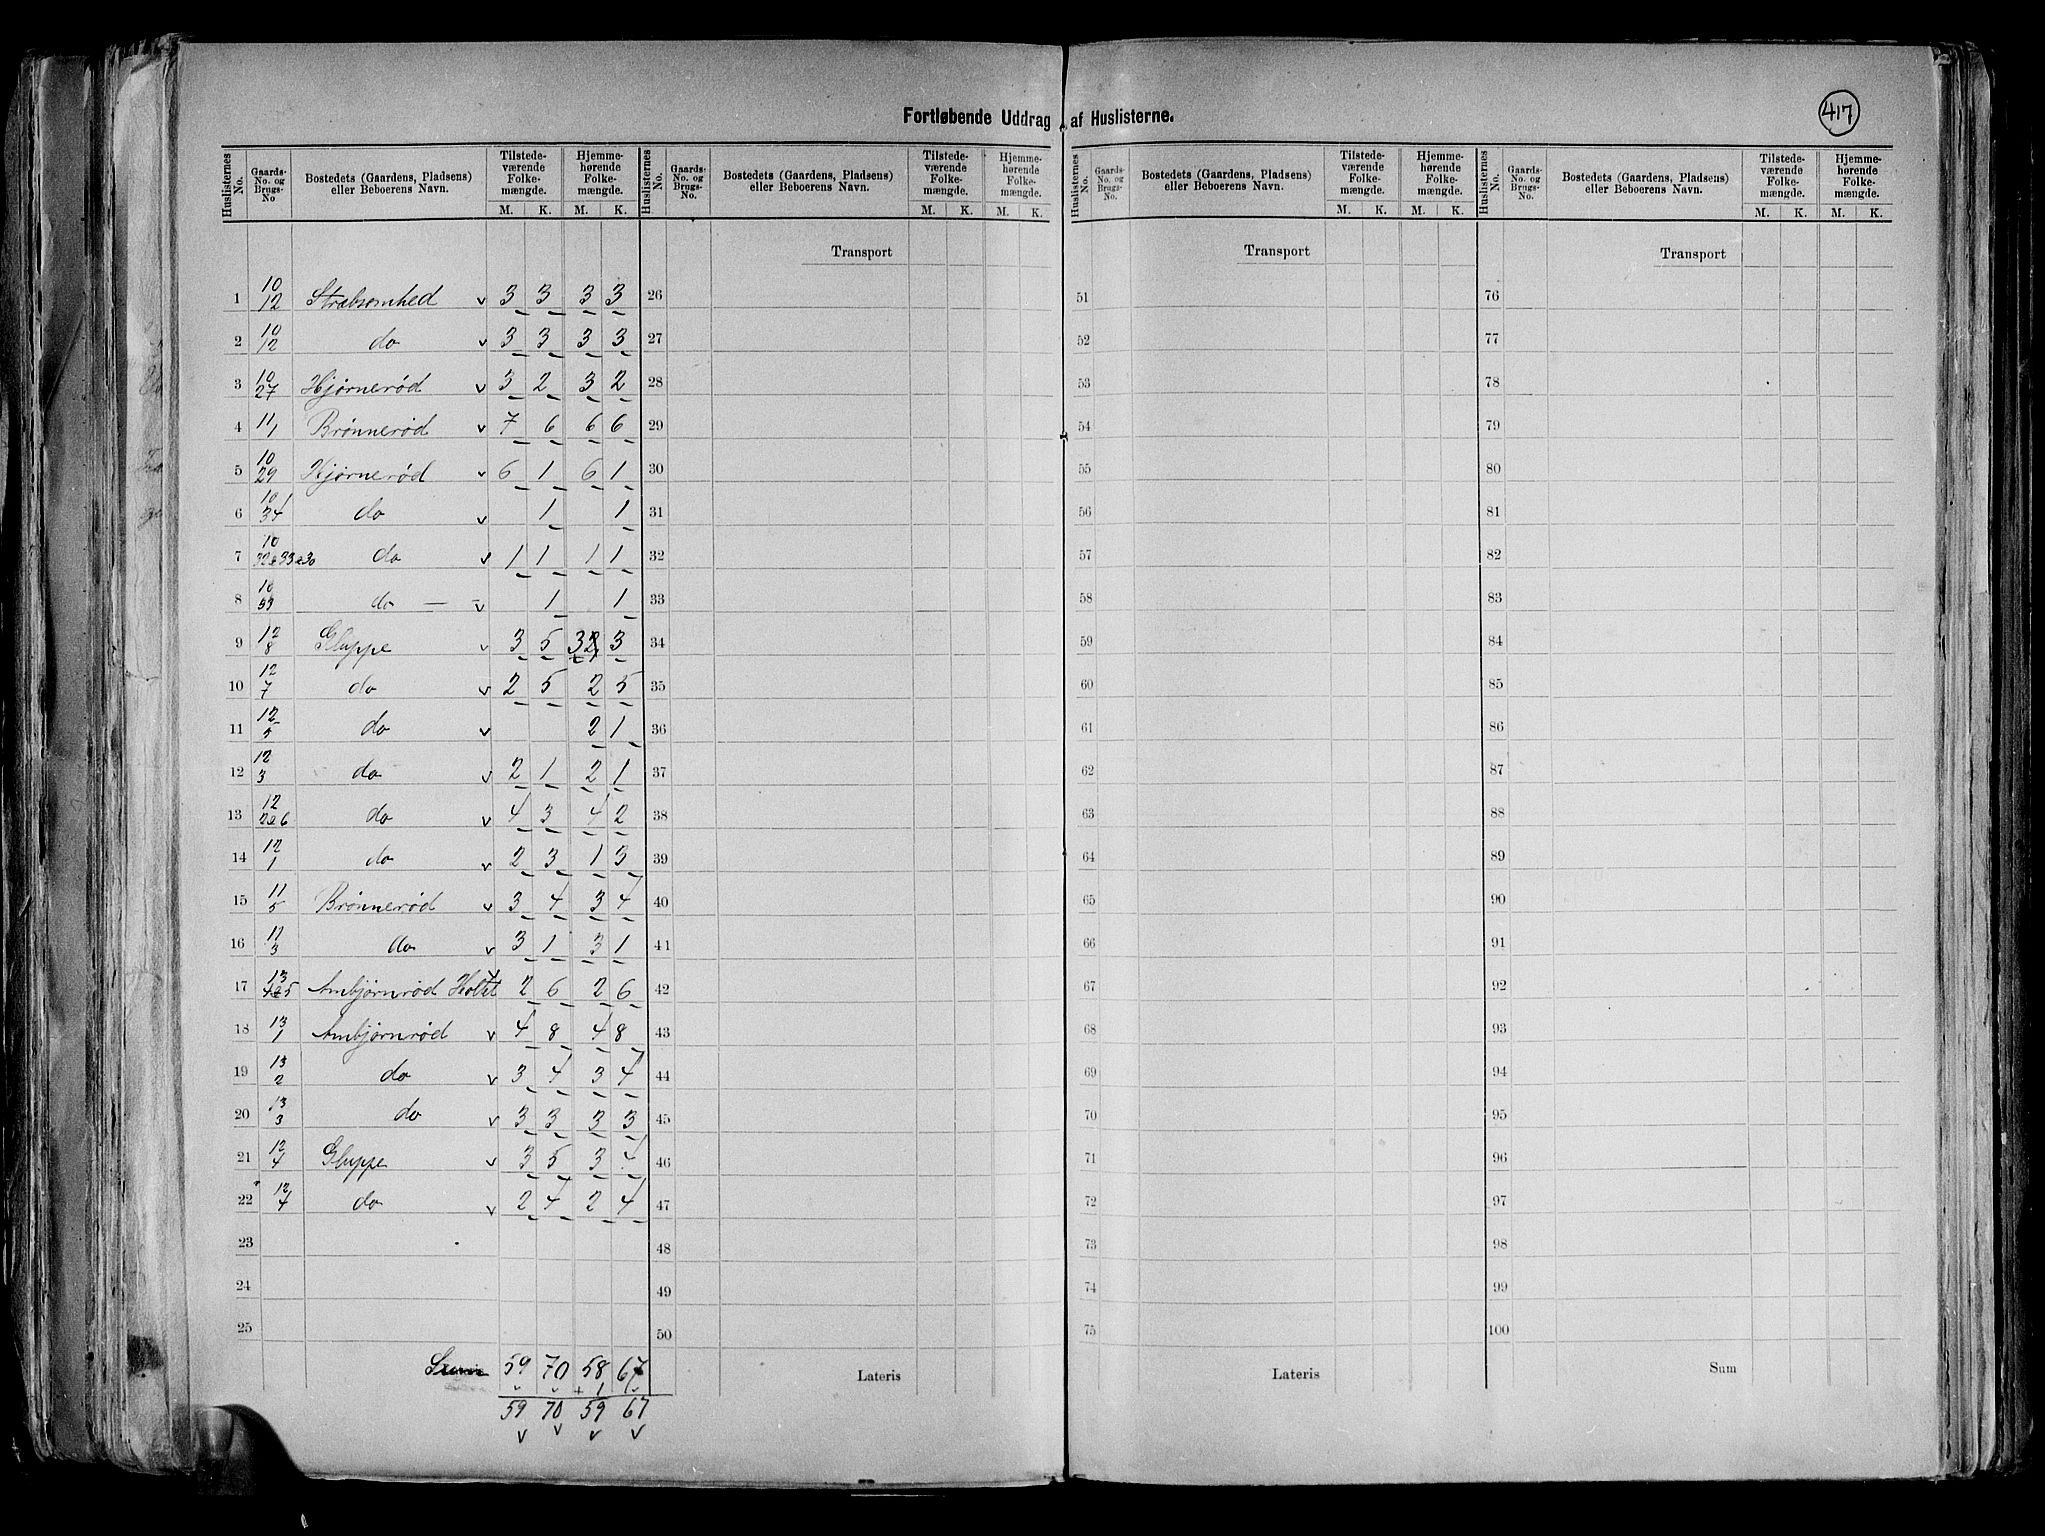 417
Fortløbende Uddrag af Huslisterne.
Huslisternes No. | Gaards-No. og Brugs-No | Bostedets (Gaardens, Pladsens) eller Beboerens Navn. | Tilstedeværende Folkemængde. M. K. | Hjemmehørende Folkemængde. M. K.
Huslisternes No. | Gaards-No. og Brugs-No. | Bostedets (Gaardens, Pladsens) eller Beboerens Navn. | Tilstedeværende Folkemængde. M. K. | Hjemmehørende Folkemængde. M. K.
Huslisternes No. | Gaards-No. og Brugs-No. | Bostedets (Gaardens, Pladsens) eller Beboerens Navn. | Tilstedeværende Folkemængde. M. K. | Hjemmehørende Folkemængde. M. K.
Huslisternes No. | Gaards-No. og Brugs-No. | Bostedets (Gaardens, Pladsens) eller Beboerens Navn. | Tilstedeværende Folkemængde. M. K. | Hjemmehørende Folkemængde. M. K.
Transport Transport Transport
1 10/12 Stræbsomhed v 3 3 3 3 26 51 76
2 10/12 do v 3 3 3 3 27 52 77
3 10/27 Hjørnerød v 3 2 3 2 28 53 78
4 11/1 Brønnerød v 7 6 6 6 29 54 79
5 10/29 Hjørnerød v 6 1 6 1 30 55 80
6 10/34 do v 1 1 31 56 81
7 10/32 & 33 & 30 do v 1 1 1 1 32 57 82
8 10/33 do — v 1 1 33 58 83
9 12/8 Gluppe v 3 5 3 2 3 34 59 84
10 12/7 do v 2 5 2 5 35 60 85
11 12/5 do v 2 1 36 61 86
12 12/3 do v 2 1 2 1 37 62 87
13 12/2 & 6 do v 4 3 4 2 38 63 88
14 12/1 do v 2 3 1 3 39 64 89
15 11/5 Brønnerød v 3 4 3 4 40 65 90
16 11/3 do v 3 1 3 1 41 66 91
17 13/4 & 5 Ambjørnrød Holtet v 2 6 2 6 42 67 92
18 13/1 Ambjørnrød v 4 8 4 8 43 68 93
19 13/2 do v 3 4 3 4 44 69 94
20 13/3 do v 3 3 3 3 45 70 95
21 12/4 Gluppe v 3 5 3 4 46 71 96
22 12/4 do v 2 4 2 4 47 72 97
23 48 73 98
24 49 74 99
25 50 75 100
Summa 59 70 58 67 Lateris Lateris Sum
+ 1
59 70 59 67
v v v v